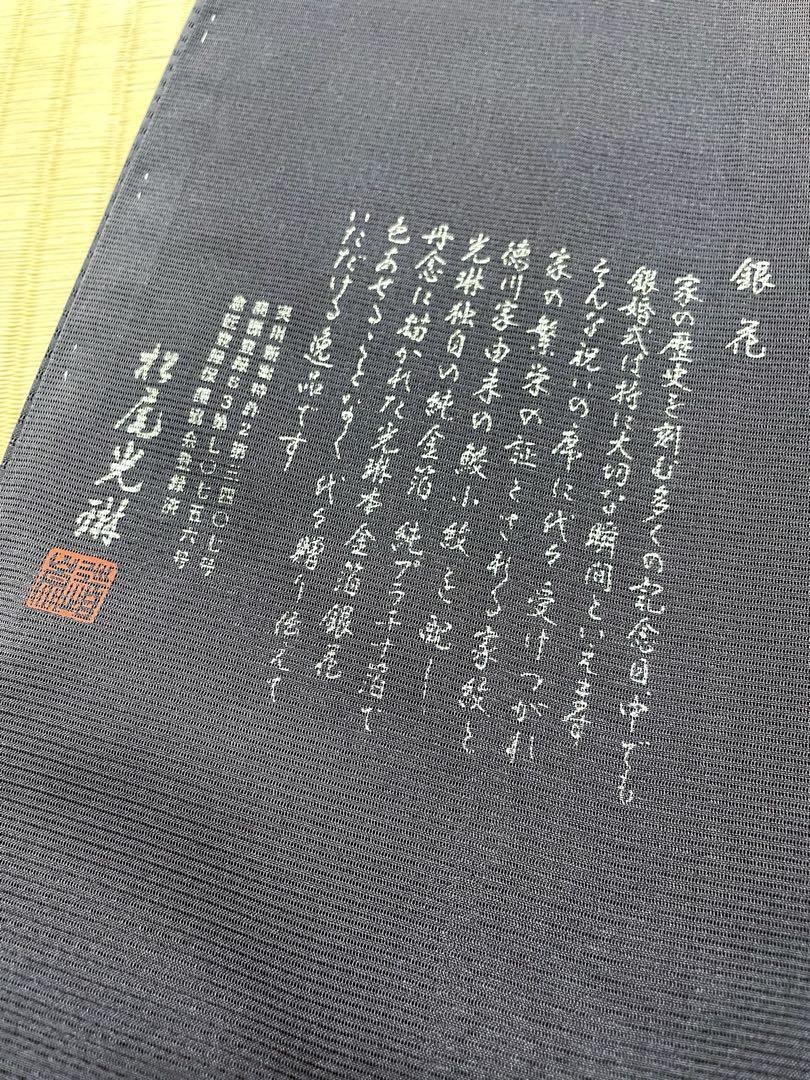 銀花
家の歴史を刻む多くの記念日、中でも
銀婚式は特に大切な瞬間といえます
そんな祝いの席に代々受けつがれ
家の繁栄の証とされる家紋と
徳川家由来の鮫小紋を配し
光琳独自の純金箔 純プラチナ箔で
丹念に描かれた光琳本金箔銀花
色あせることなく 代々贈り伝えて
いただける逸品です
実用新案特許2第三四〇七号
商標登録
登録済
松尾光琳